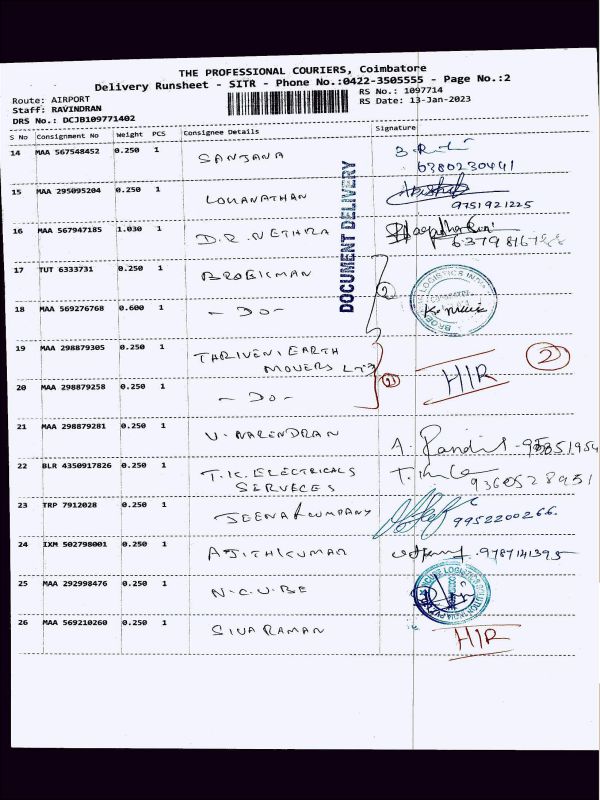 THE PROFESSIONAL COURIERS, Coimbatore
Delivery Runsheet - SITR - Phone No.:0422-3505555 - Page No.:2
Route: AIRPORT
Staff: RAVINDRAN
DRS No.: DCJB109771402
RS No.: 1097714
RS Date: 13-Jan-2023
S No Consignment No Weight PCS Consignee Details Signature
DOCUMENT DELIVERY
14 MAA 567548452 0.250 1 SANJANA
6380230441
15 MAA 295095204 0.250 1 LOHANATHAN
9751921225
16 MAA 567947185 1.030 1 D.R. NETHRA
17 TUT 6333731 0.250 1 BROEKMAN
2
18 MAA 569276768 0.600 1 - DO -
19 MAA 298879305 0.250 1 THRIVENI EARTH
MOVERS LTD
HIR 2
20 MAA 298879258 0.250 1 - DO -
21 MAA 298879281 0.250 1 V. NARENDRAN
A.
22 BLR 4350917826 0.250 1 T.K. ELECTRICALS
SERVECES
9360528951
23 TRP 7912028 0.250 1 JEENA & COMPANY
9952200266.
24 IXM 502798001 0.250 1 AJITHKUMAR 9787141395
25 MAA 292998476 0.250 1 N.C.U.BE
26 MAA 569210260 0.250 1 SIVA RAMAN
HIR